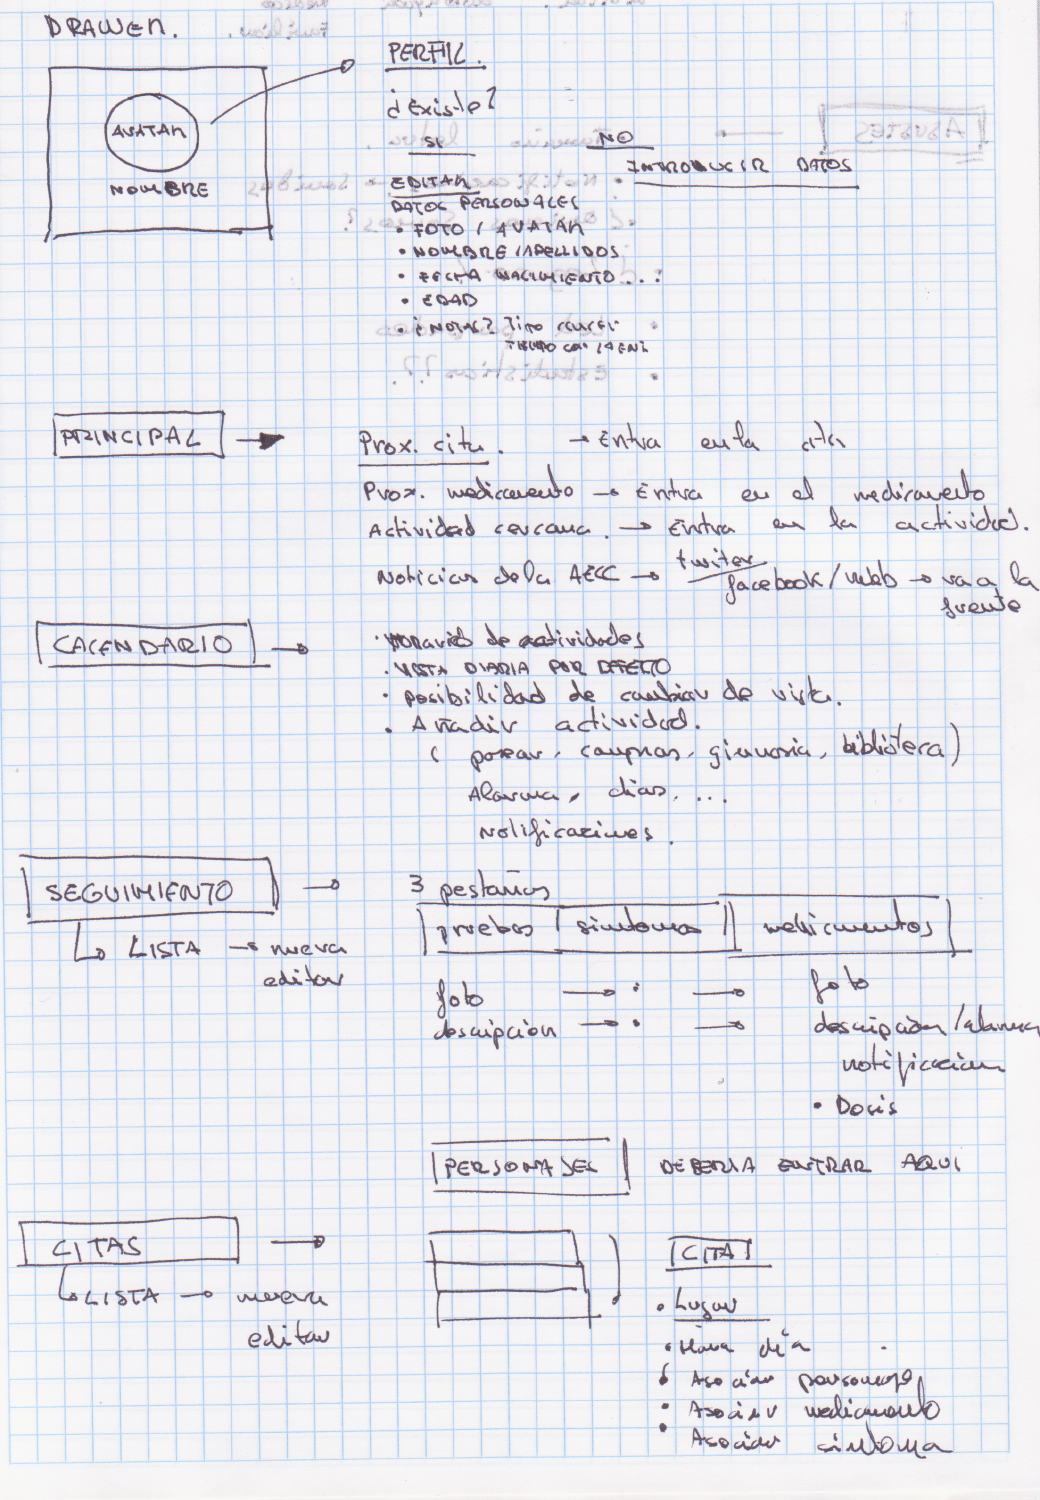 DRAWER.
PERFIL.
¿Existe?
AVATAR
NOMBRE
SI
NO
EDITAR
INTRODUCIR DATOS
DATOS PERSONALES
• FOTO / AVATAR
• NOMBRE / APELLIDOS
• FECHA NACIMIENTO...
• EDAD
• ¿NOTAS? TIPO CANCER
TIEMPO CON
PRINCIPAL →
Prox. cita. → Entra en la cita
Prox. medicamento → Entra en el medicamento
Actividad cercana. → Entra en la actividad.
Noticias de la AECC → twiter
facebook/web → va a la
fuente
CALENDARIO →
• Horario de actividades
• VISTA DIARIA POR DEFECTO
• Posibilidad de cambiar de vista.
• Añadir actividad.
( pasear, compras, gimnasia, biblioteca)
Alarma, días, ...
Notificaciones.
SEGUIMIENTO →
3 pestañas
↳ LISTA → nueva
editar
pruebas
síntomas
medicamentos
foto → • → foto
descripción → • → descripción /alarma
notificación
• Dosis
PERSONAJES DEBERIA ENTRAR AQUI
CITAS →
↳ LISTA → nueva
editar
CITA
• Lugar
• Hora día
• Asociar personaje
• Asociar medicamento
• Asociar síntoma
AJUSTES